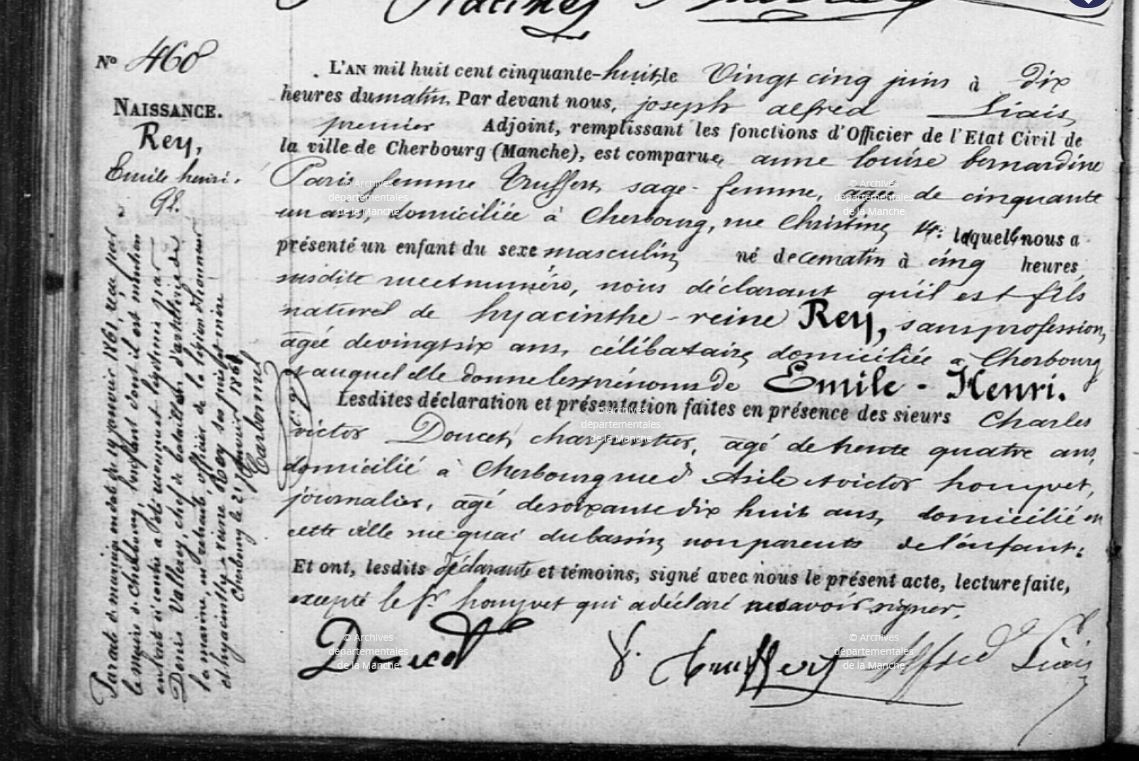 Nº 460
NAISSANCE.
Rey,
Emile henri.
98.
L'AN mil huit cent cinquante-huit le Vingt cinq juin à dix
heures du matin. Par devant nous, joseph alfred Liais,
premier Adjoint, remplissant les fonctions d'Officier de l'Etat Civil de
la ville de Cherbourg (Manche), est comparue, anne louise bernardine
Paris femme Truffert, sage-femme, agée de cinquante
un ans, domiciliée à Cherbourg, rue Christine, 14: laquelle nous a
présenté un enfant du sexe masculin, né de ce matin à cinq heures
susdite rue et numéro, nous déclarant qu'il est fils
naturel de hyacinthe-reine Rey, sans profession,
agée de vingt six ans, célibataire, domiciliée à Cherbourg
et auquel elle donne les prénoms de Emile-Henri.
Lesdites déclaration et présentation faites en présence des sieurs Charles
victor Doucet, charpentier, agé de trente quatre ans,
domicilié à Cherbourg rue de Asile et victor houyvet,
journalier, agé de soixante dix huit ans, domicilié en
cette ville rue quai du bassin, non parents de l'enfant.
Et ont, lesdits déclarante et témoins, signé avec nous le présent acte, lecture faite,
excepté le Sr. houyvet qui a déclaré ne savoir signer.
Doucet F. Truffert Alfred Liais
Par acte de mariage en date du 19 janvier 1861, reçu par
le maire de Cherbourg, l'enfant dont il est mention
en l'acte ci contre a été reconnu et légitimé par
Denis Vallerey, chef de bataillon d'artillerie de
la marine, en retraite, officier de la légion d'honneur
et hyacinthe reine Rey ses père et mère
Cherbourg le 21 janvier 1861
Carbonnel
© Archives
départementales
de la Manche
© Archives
départementales
de la Manche
© Archives
départementales
de la Manche
© Archives
départementales
de la Manche
© Archives
départementales
de la Manche